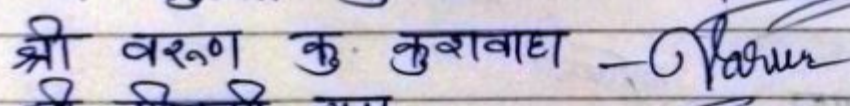 श्री वरूण कु. कुशवाहा - Varun